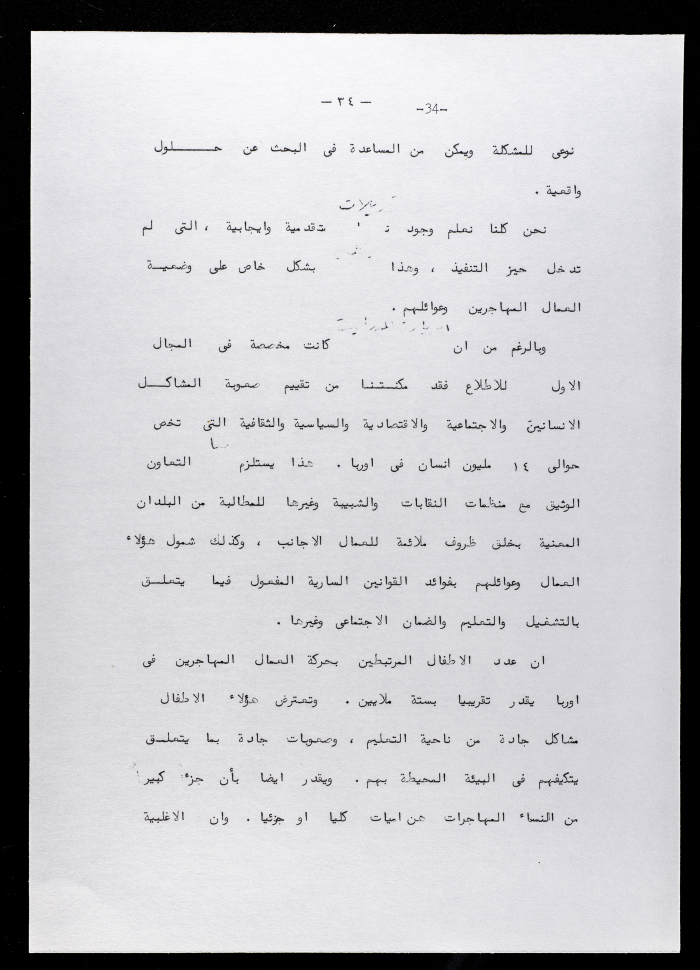 - ٣٤ -
-34-
نوعى للمشكلة ويمكن من المساعدة فى البحث عن حـــلول
واقعية .
نحن كلنا نعلم وجود تقدمية وايجابية ، التى لم
تدخل حيز التنفيذ ، وهذا بشكل خاص على وضعيـة
العمال المهاجرين وعوائلهم .
وبالرغم من ان كانت مخصصة فى المجال
الاول للاطلاع فقد مكنتنا من تقييم صعوبة المشاكـل
الانسانية والاجتماعية والاقتصادية والسياسية والثقافية التى تخص
حوالى ١٤ مليون انسان فى اوربا . هذا يستلزم التعاون
الوثيق مع منظمات النقابات والشبيبة وغيرها للمطالبة من البلدان
المعنية بخلق ظروف ملائمة للعمال الاجانب ، وكذلك شمول هؤلاء
العمال وعوائلهم بفوائد القوانين السارية المفعول فيما يتعلـق
بالتشغيل والتعليم والضمان الاجتماعى وغيرها .
ان عدد الاطفال المرتبطين بحركة العمال المهاجرين فى
اوربا يقدر تقريبيا بستة ملايين . وتعترض هؤلاء الاطفال
مشاكل جادة من ناحية التعليم ، وصعوبات جادة بما يتعلـق
بتكيفهم فى البيئة المحيطة بهم . ويقدر ايضا بأن جزء كبير
من النساء المهاجرات هن اميات كليا او جزئيا . وان الاغلبية